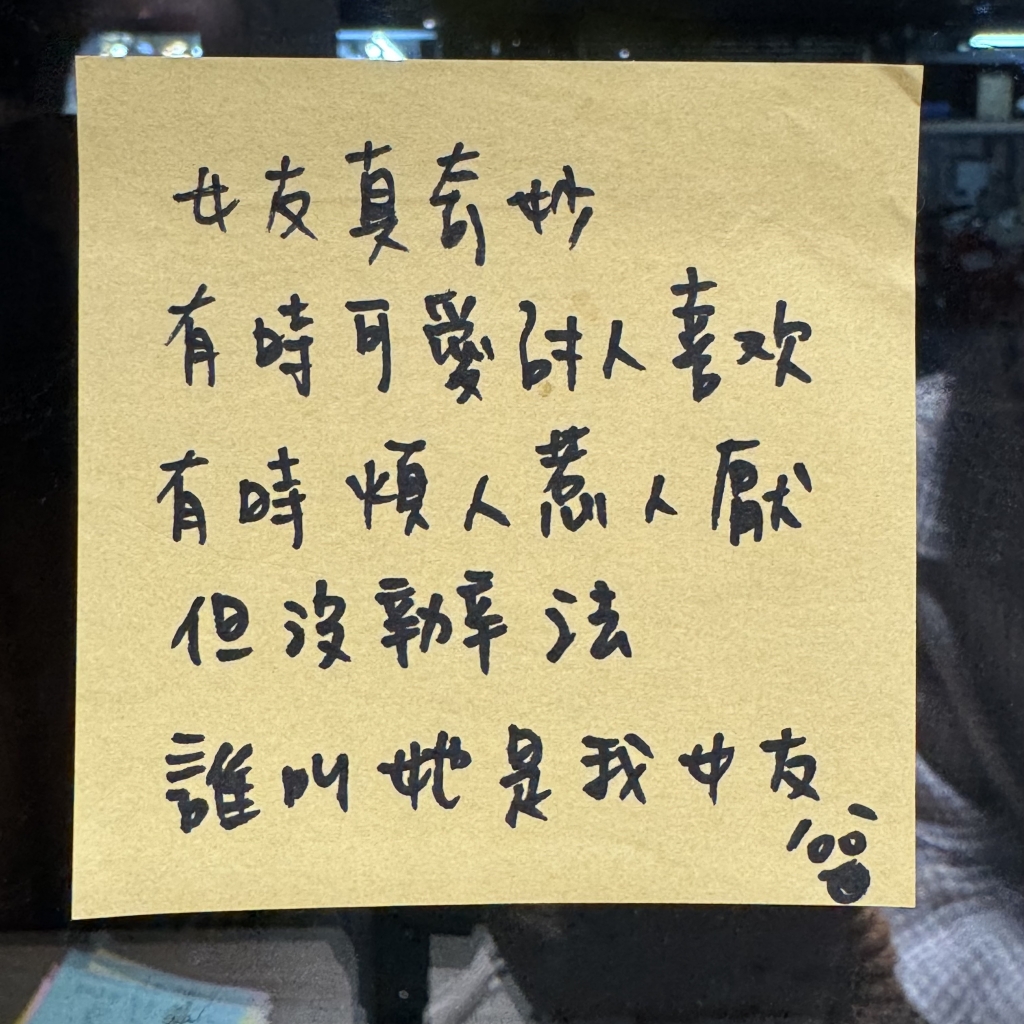 女友真奇妙
有時可愛討人喜欢
有時煩人惹人厭
但沒辦法
誰叫她是我女友